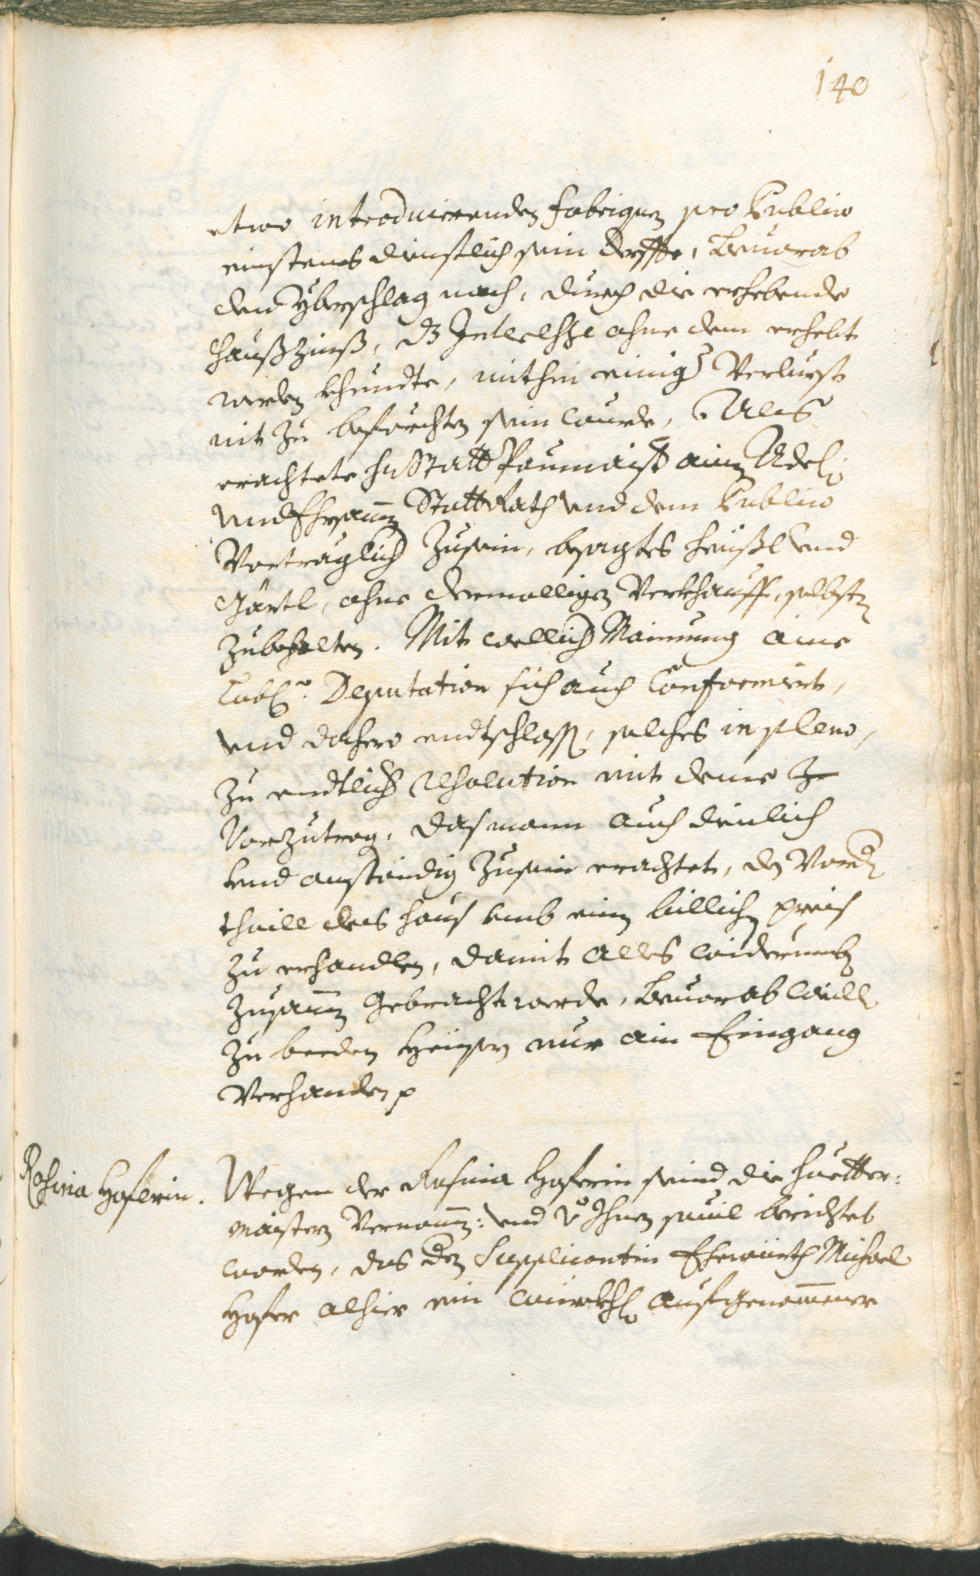 140
etwo introducirenden fabriquen pro Publico
einstens dienstlich sein derffte, Beuorab
dem Yberschlag nach, durch die erhebende
Haußzinß, dz Interesse ohne dem erhebt
werden khundte, mithin einig Verlurst
nit zu beförchten sein wurde, Alß
erachtete H: Statt Paumaistr ainem Adel:
und Ehrsamen Statt Rath und dem Publico
Vorträglich zu sein, besagtes Heüßl und
Gärtl, ohne dermalligen Verkhauff, selbsten
zubehalten. Mit wellich Mainung aine
Lobl: Deputation sich auch Conformirt,
und dahero endtschlossen, solches in pleno,
zu endtlicher Resolution mit deme
Vorzutrag, das mann auch dienlich
und anständig zu sein erachtet, den Vordern
thaill des Haus umb einen billichen preis
zu erhandlen, damit alles widerumb
zusamen gebracht werde, Beuorab weill
zu beeden Heüsern nur ain Eingang
Verhanden p
Rosina Hoferin.
Wegen der Rosina Hoferin seind die Huetter-
maistern Vernomen: und v: Ihnen souil berichtet
worden, das der Supplicantin Ehewürth Michael
Hofer alhier ein würkhl: aufgenommener